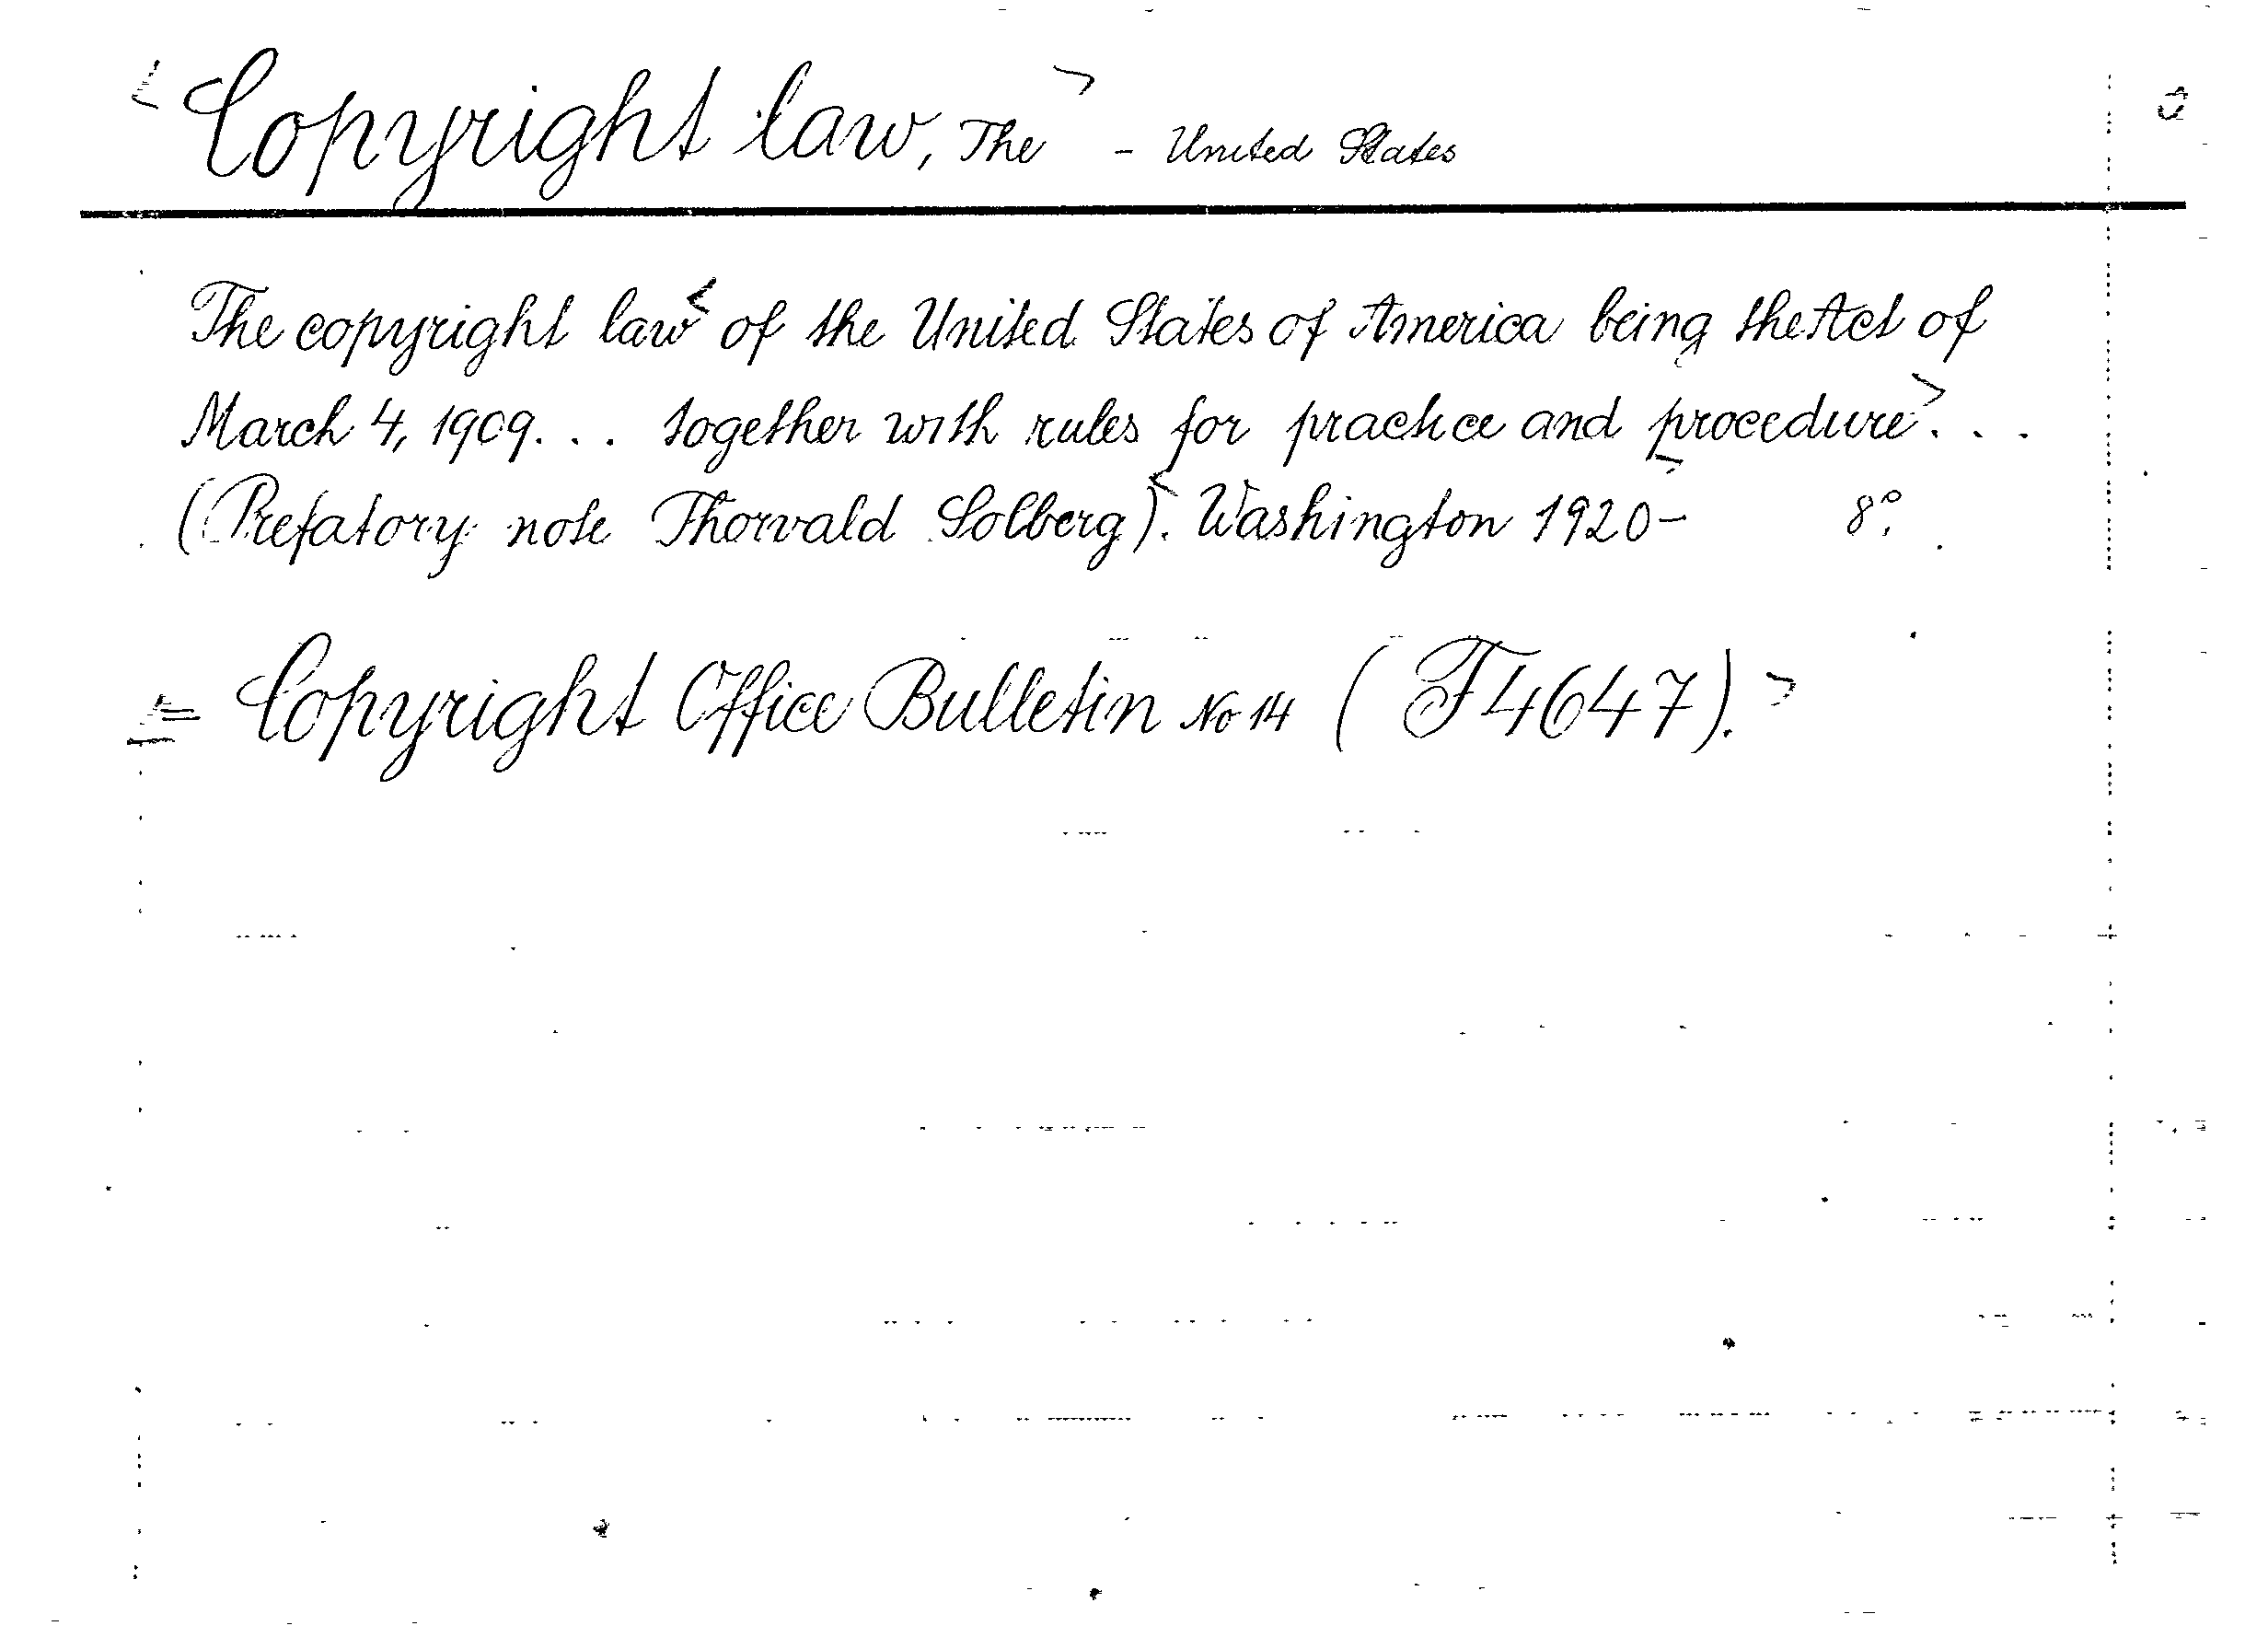 <Copyright law, The> - United States
The copyright law< of the United States of America being the Act of
March 4, 1909... together with rules for practice and procedure>...
(Prefatory note Thorvald Solberg)<. Washington 1920-> 8°.
= Copyright Office Bulletin No 14 (F4647).>